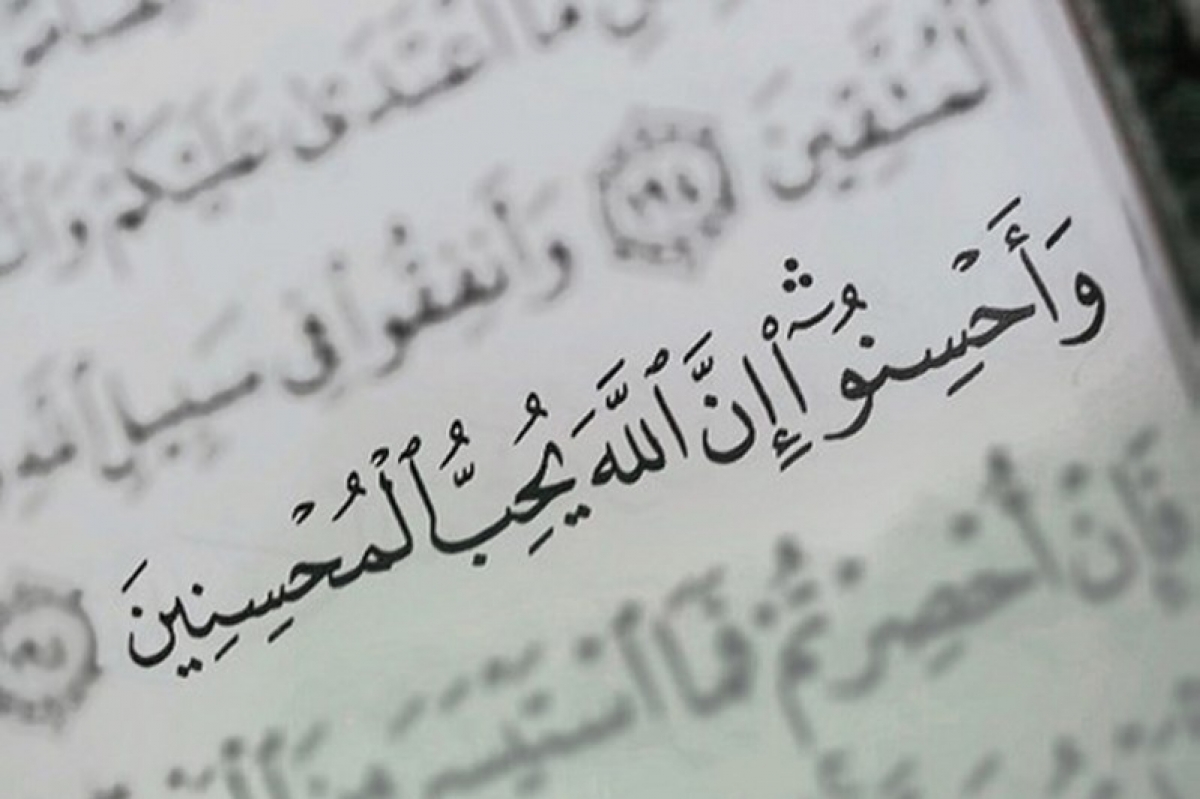 مَا ٱعْتَدَىٰ عَلَيْكُمْ وَٱ
ٱلْمُتَّقِينَ ١٩٤ وَأَنفِقُوا۟ فِى سَبِيلِ ٱللَّهِ
وَأَحْسِنُوٓا۟ ۛ إِنَّ ٱللَّهَ يُحِبُّ ٱلْمُحْسِنِينَ ١٩٥
فَإِنْ أُحْصِرْتُمْ فَمَا ٱسْتَيْسَرَ مِنَ